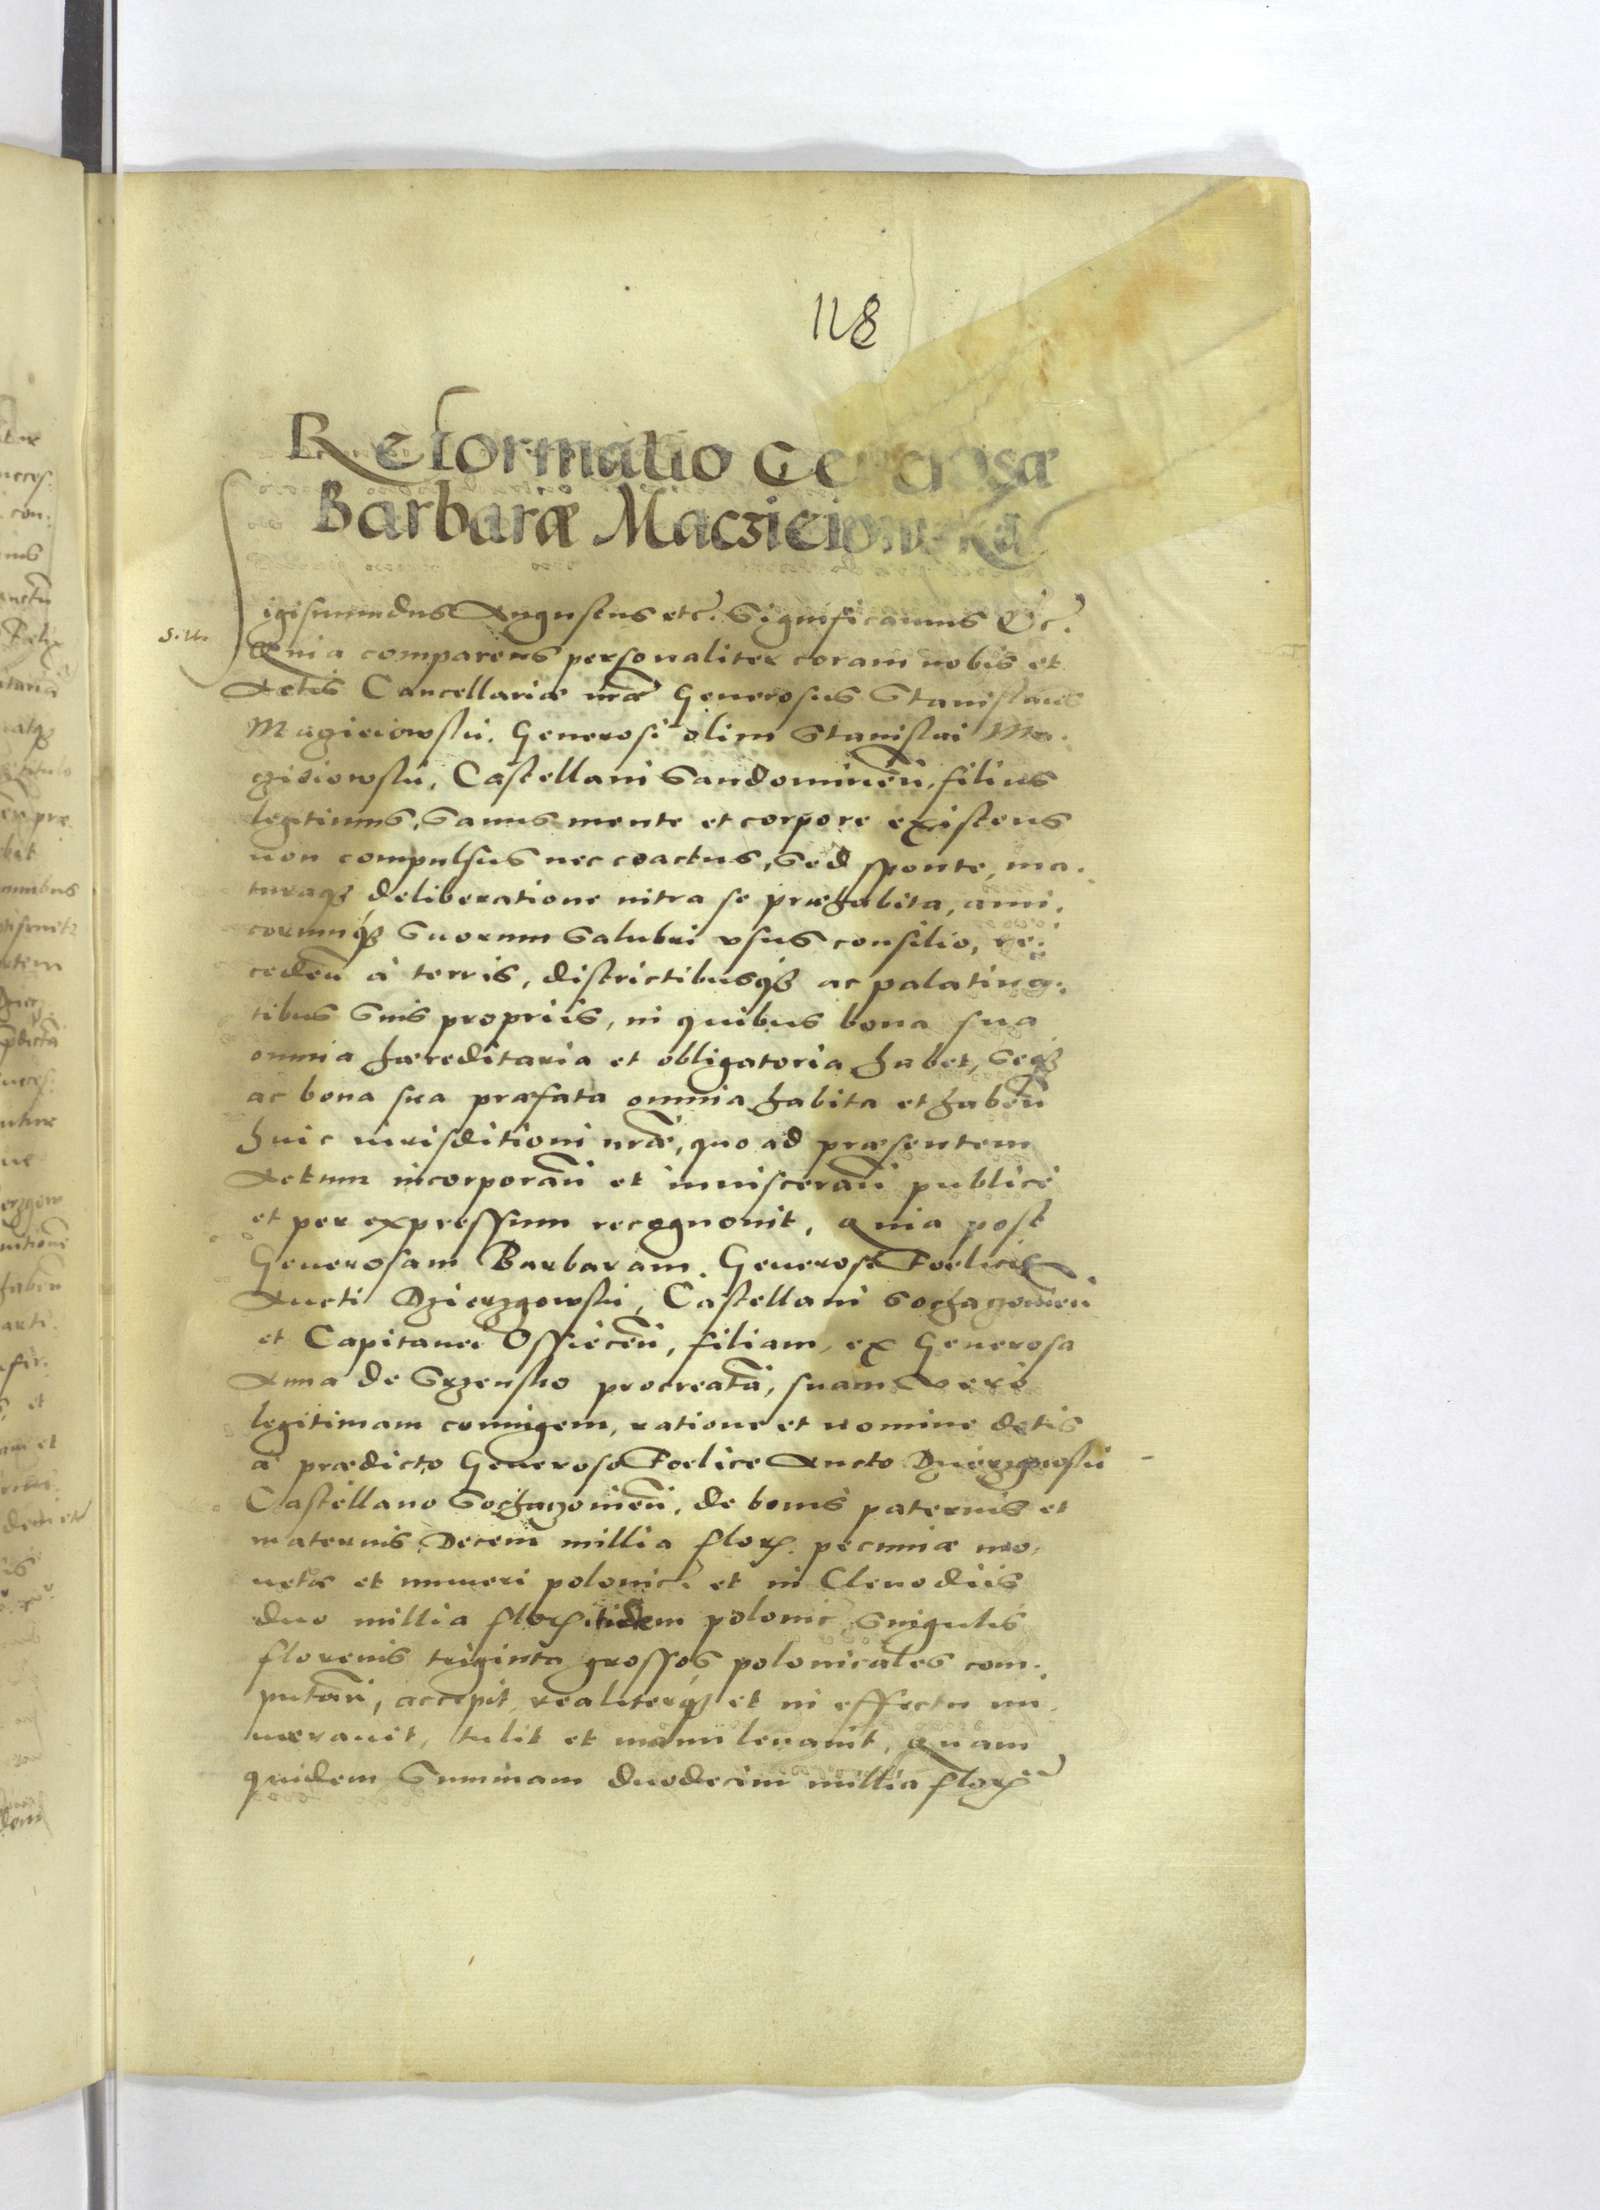 118
Reformatio Generosæ
Barbaræ Maczieiowska
Sigismundus Augustus etc. Significamus &c.
Quia comparens personaliter coram nobis et
Actis Cancellariæ nræ Generosus Stanislaus
Maczieiowskii, Generosi olim Stanislai Ma-
czieiowskii, Castellani Sandomirien, filius
legitimus, sanus mente et corpore existens
non compulsus nec coactus, sed sponte, ma-
turaq3 deliberatione intra se præhabita, ami-
corumq3 suorum salubri vsus consilio, re-
ceden à terris, districtibusq3 ac palatina-
tibus suis propriis, in quibus bona sua
omnia hæreditaria et obligatoria habet, seq3
ac bona sua præfata omnia habita et haben
huic iurisditioni nræ, quo ad præsentem
Actum incorporan et inuisceran publicè
et per expressum recognouit, Quia post
Generosam Barbaram, Generosi Foelicis
Aucti Dzierzgowskii, Castellani Sochaczouien
et Capitanei Ossiecen, filiam, ex Generosa
Anna de Srzensko procreatã, suam vero
legitimam coniugem, ratione et nomine dotis
à prædicto Generoso Foelice Aucto Dzierzgowskii
Castellano Sochaczouien, de bonis paternis et
maternis Decem millia flor. pecuniæ mo-
netæ et numeri polonic. et in Clenodiis
duo millia flor. itidem polonic singulis
florenis triginta grossos polonicales com-
putan, accepit realiterq3 et in effectu nu-
merauit, tulit et manu leuauit, Quam
quidem Summam duodecim millia flor.